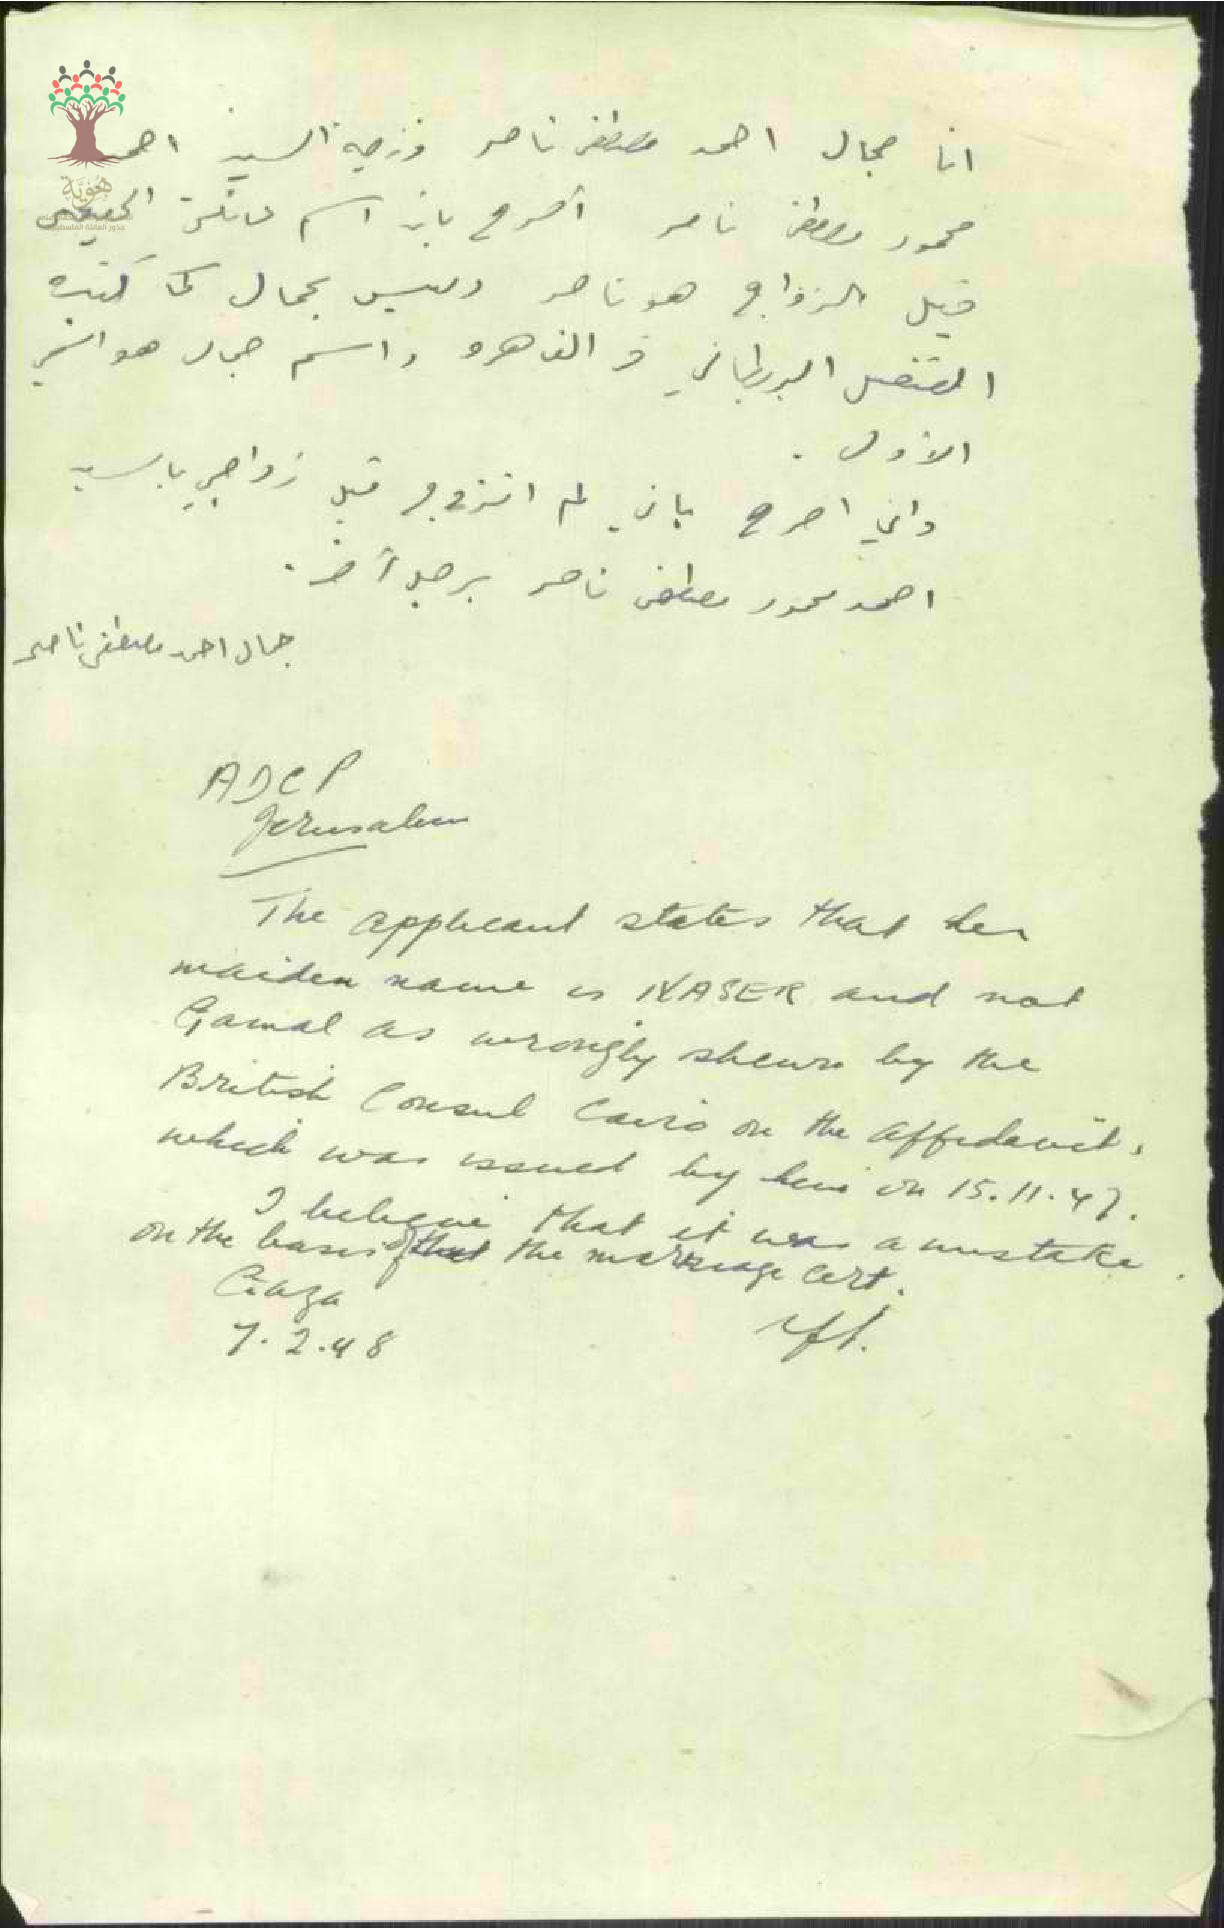 هوية
جذور العائلة الفلسطينية
انا جمال احمد مصطفى ناصر وزوجة السيد احمد
محمود مصطفى ناصر أصرح بان اسم عائلتي الحقيقي
قبل الزواج هو ناصر وليس بجمال كما كتبه
القنصل البريطاني في القاهره واسم جمال هو اسمي
الاول .
واني اصرح باني لم اتزوج قبل زواجي بالسيد
احمد محمود مصطفى ناصر برجل آخر .
جمال احمد مصطفى ناصر
ADCP
Jerusalem
The applicant states that her
maiden name is NASER and not
Gamal as wrongly shewn by the
British Consul Cairo on the affidavit,
which was issued by him on 15.11.47.
I believe that it was a mistake
on the basis of the marriage cert.
Gaza
7.2.48